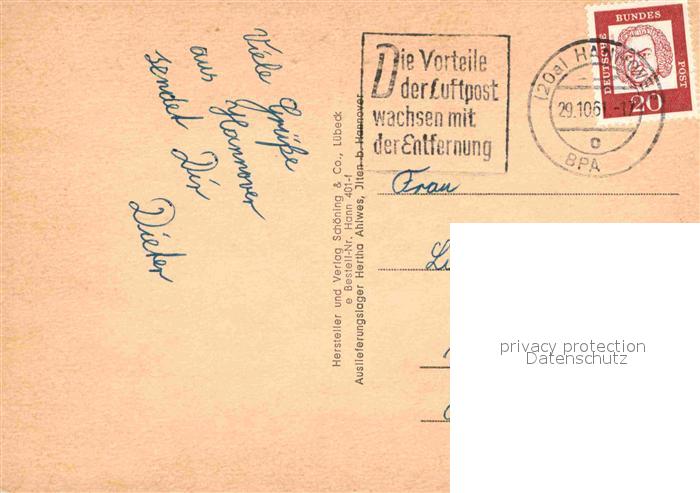 Viele Grüße
aus Hannover
sendet Dir
Dieter
Hersteller und Verlag Schöning & Co., Lübeck
e Bestell-Nr. Hann 401-f
Auslieferungslager Hertha Ahlwes, Ilten b. Hannover
Die Vorteile
der Luftpost
wachsen mit
der Entfernung
(20a) HANNOVER
29.10.61
c
BPA
DEUTSCHE BUNDESPOST
20
Frau
privacy protection
Datenschutz